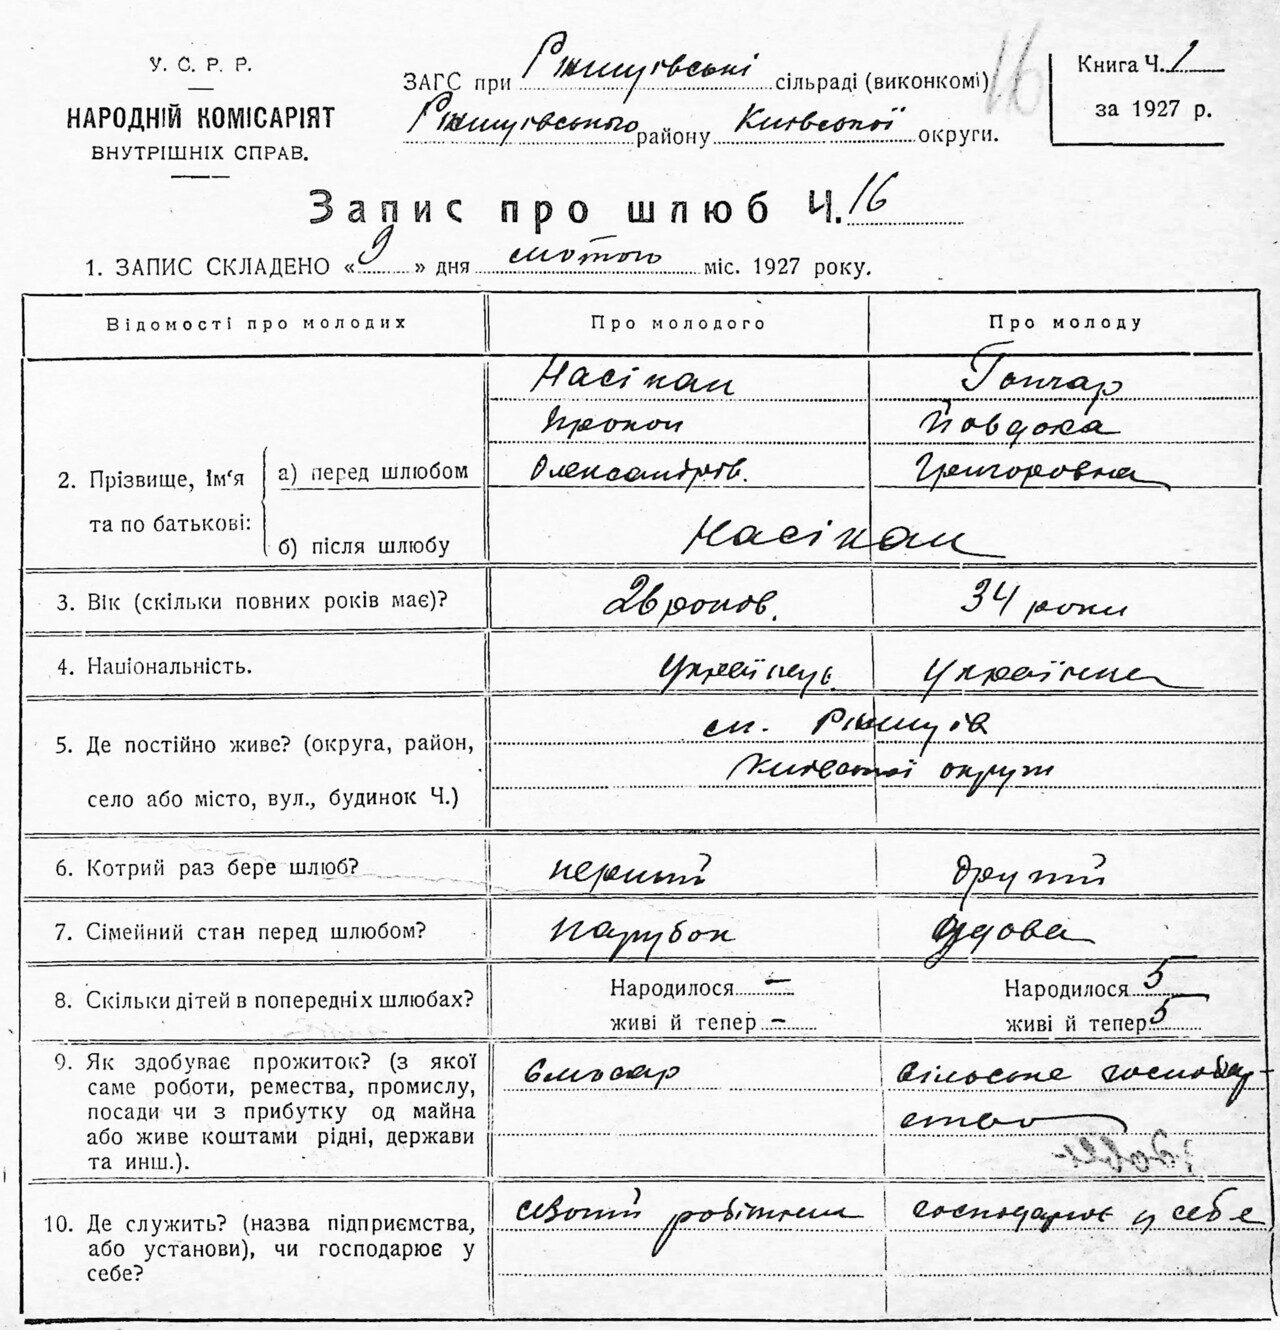 У. С. Р. Р.
НАРОДНІЙ КОМІСАРІЯТ
ВНУТРІШНІХ СПРАВ.
ЗАГС при Ржищівські сільраді (виконкомі)
Ржищівського району Київської округи.
16
Книга Ч. 1
за 1927 р.
Запис про шлюб Ч. 16
1. ЗАПИС СКЛАДЕНО « 9 » дня лютого міс. 1927 року.
Відомості про молодих
Про молодого
Про молоду
2. Прізвище, ім‘я та по батькові:
а) перед шлюбом
Насікан
Прокоп
Олександрів.
Гончар
Йовдоха
Григоровна
б) після шлюбу
Насікан
3. Вік (скільки повних років має)?
26 років.
34 роки
4. Національність.
Українець
Українка
5. Де постійно живе? (округа, район,
село або місто, вул., будинок Ч.)
см. Ржищів
Київської округи
6. Котрий раз бере шлюб?
перший
другий
7. Сімейний стан перед шлюбом?
парубок
удова
8. Скільки дітей в попередніх шлюбах?
Народилося –
живі й тепер –
Народилося 5
живі й тепер 5
9. Як здобуває прожиток? (з якої
саме роботи, ремества, промислу,
посади чи з прибутку од майна
або живе коштами рідні, держави
та инш.).
слюсар
сільське господар-
ство
10. Де служить? (назва підприємства,
або установи), чи господарює у
себе?
робітник
господарює у себе